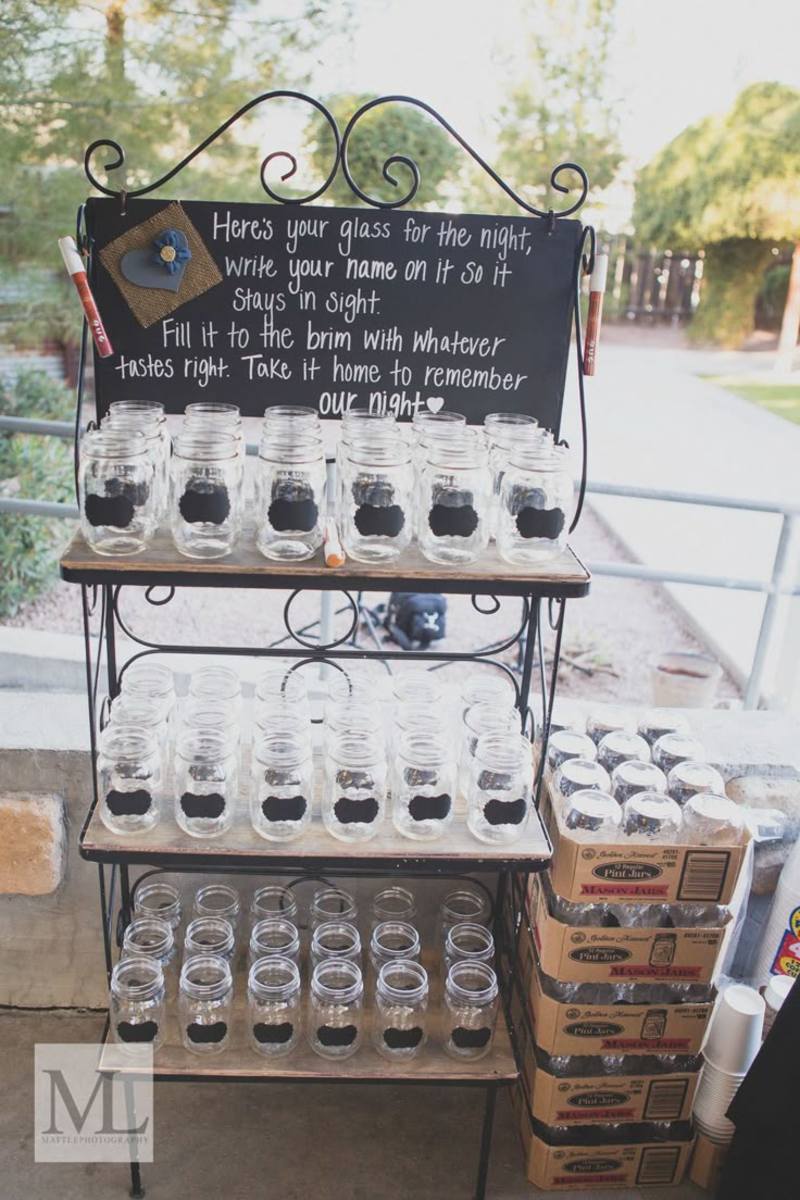 Here's your glass for the night,
write your name on it so it
stays in sight.
Fill it to the brim with whatever
tastes right. Take it home to remember
our night
Golden Harvest
12 Regular
Pint Jars
MASON JARS
Golden Harvest
Pint Jars
MASON JARS
Golden Harvest
Pint Jars
MASON JARS
Pint Jars
MASON JARS
Pint Jars
ML
MATTLEPHOTOGRAPHY